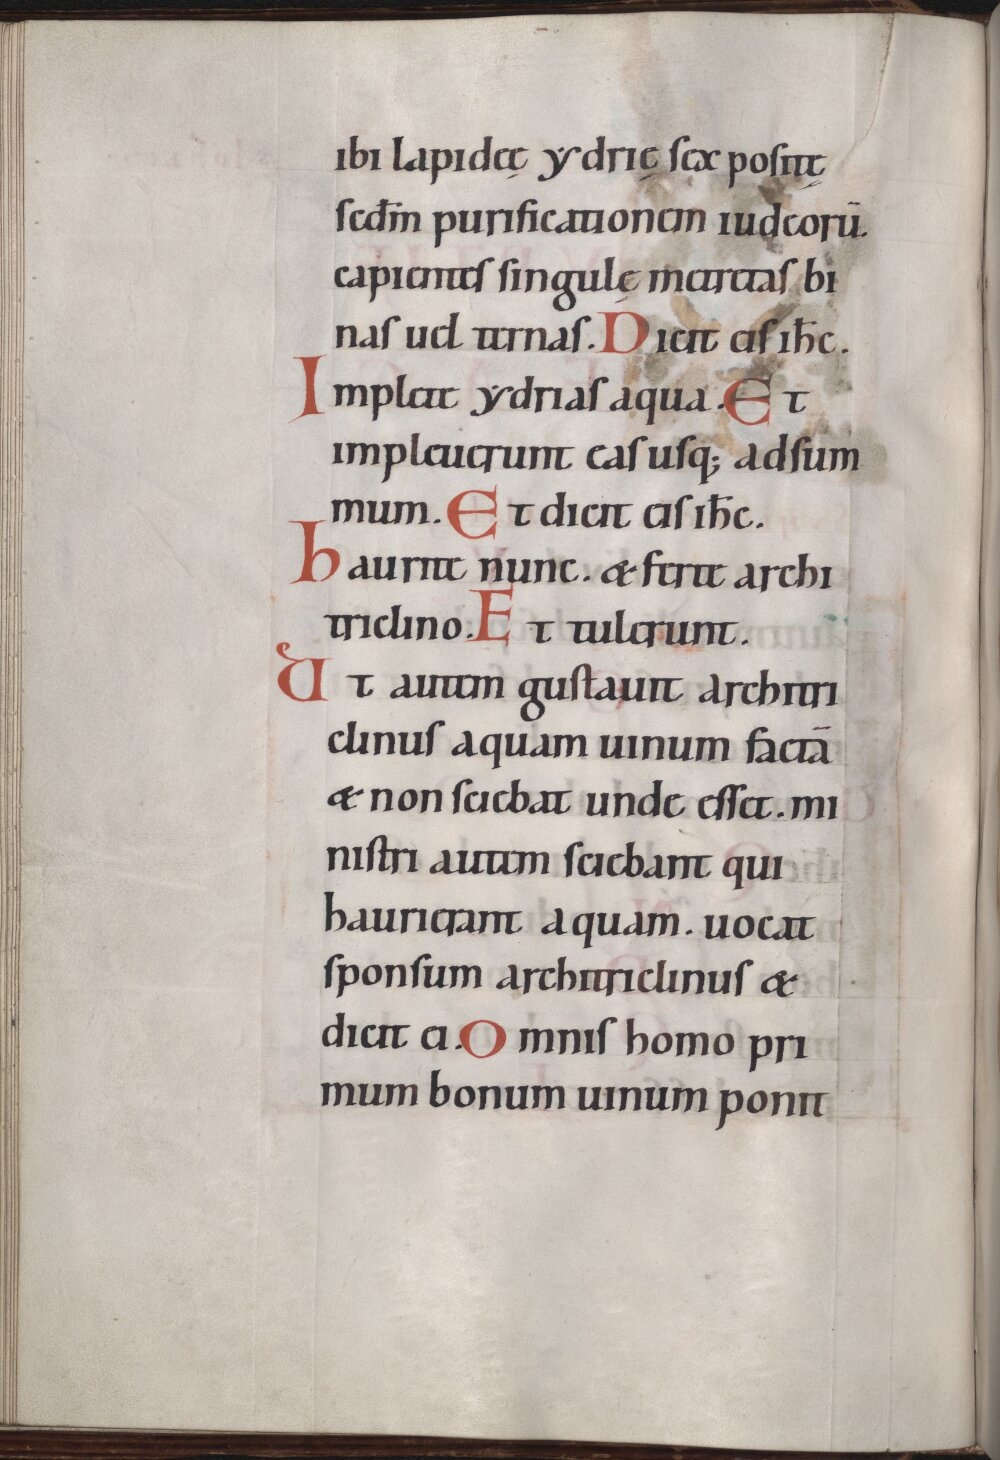 ibi lapideę ẏdrię sex positę
scđm purificationem iudeorū.
capientes singulę metretas bi
nas uel ternas. Dicit eis ih̅c.
Implete ẏdrias aqua. Et
impleuerunt eas usq; ad sum
mum. Et dicit eis ih̅c.
haurite nunc. & ferte archi
triclino. Et tulerunt.
Ut autem gustauit architri
clinus aquam uinum factā
& non sciebat unde esset. mi
nistri autem sciebant qui
haurierant aquam. uocat
sponsum architriclinus &
dicit ei. Omnis homo pri
mum bonum uinum ponit